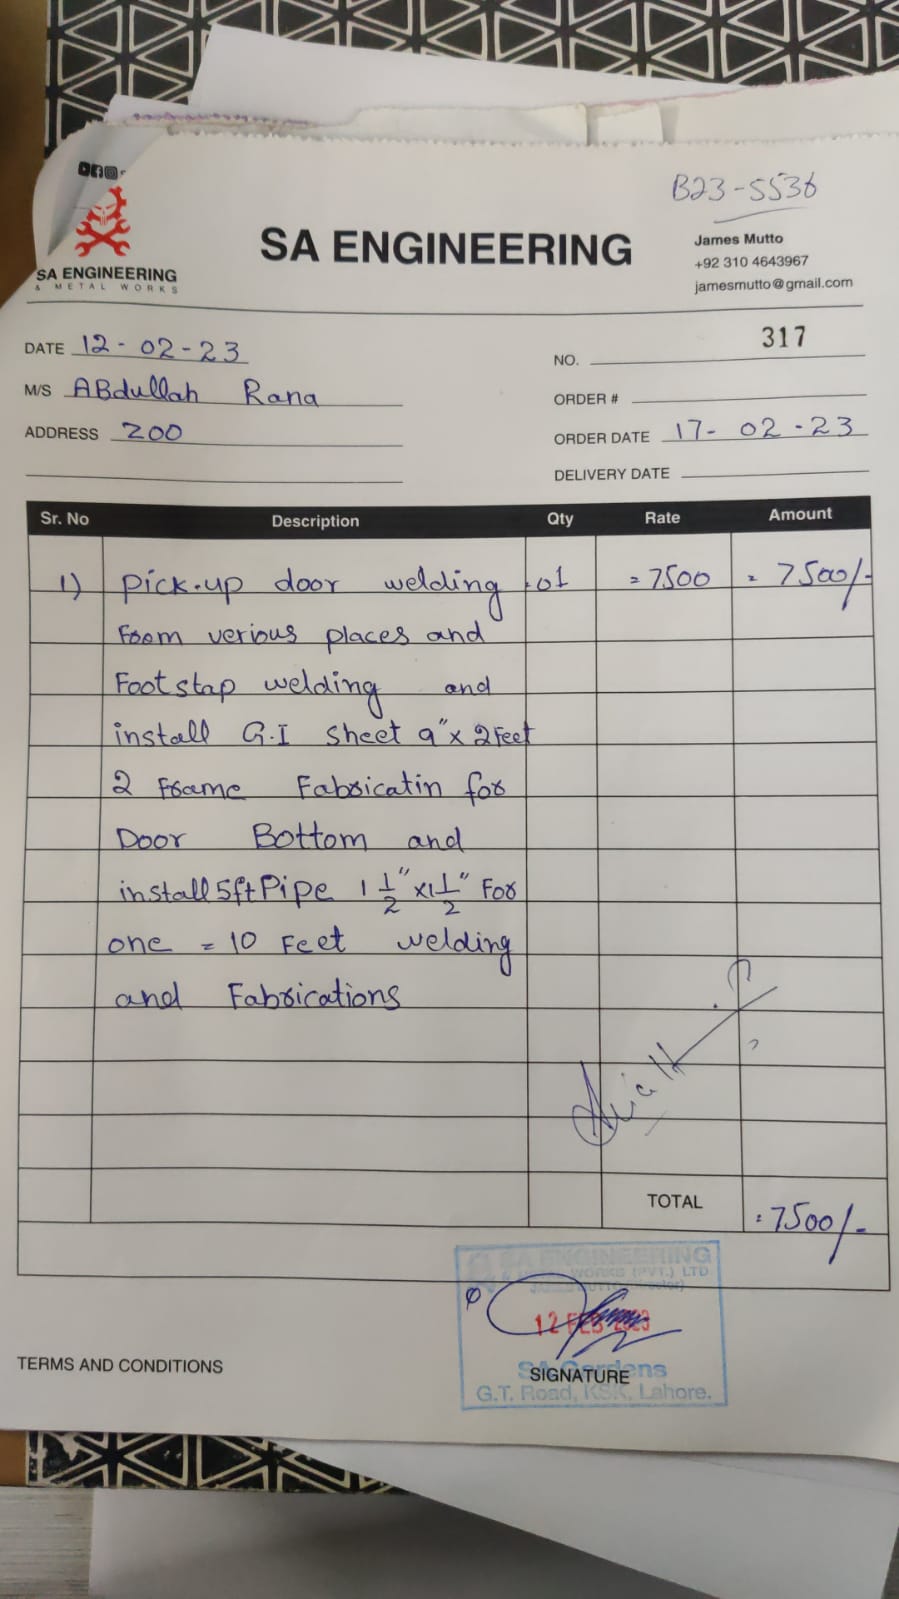 B23-5536
SA ENGINEERING
& METAL WORKS
SA ENGINEERING
James Mutto
+92 310 4643967
jamesmutto@gmail.com
DATE 12-02-23
NO. 317
M/S ABdullah Rana
ORDER #
ADDRESS ZOO
ORDER DATE 17-02-23
DELIVERY DATE
Sr. No Description Qty Rate Amount
1) Pick.up door welding .01 =7500 = 7500/-
From verious places and
Footstap welding and
install G.I Sheet 9"x 2Feet
2 Frame Fabricatin for
Door Bottom and
install 5ft Pipe 1 1/2"x1 1/2" For
one = 10 Feet welding
and Fabrications
TOTAL =7500/-
SA ENGINEERING
WORKS (PVT.) LTD
12 FEB 2023
SA Gardens
SIGNATURE
G.T. Road, KSK, Lahore.
TERMS AND CONDITIONS